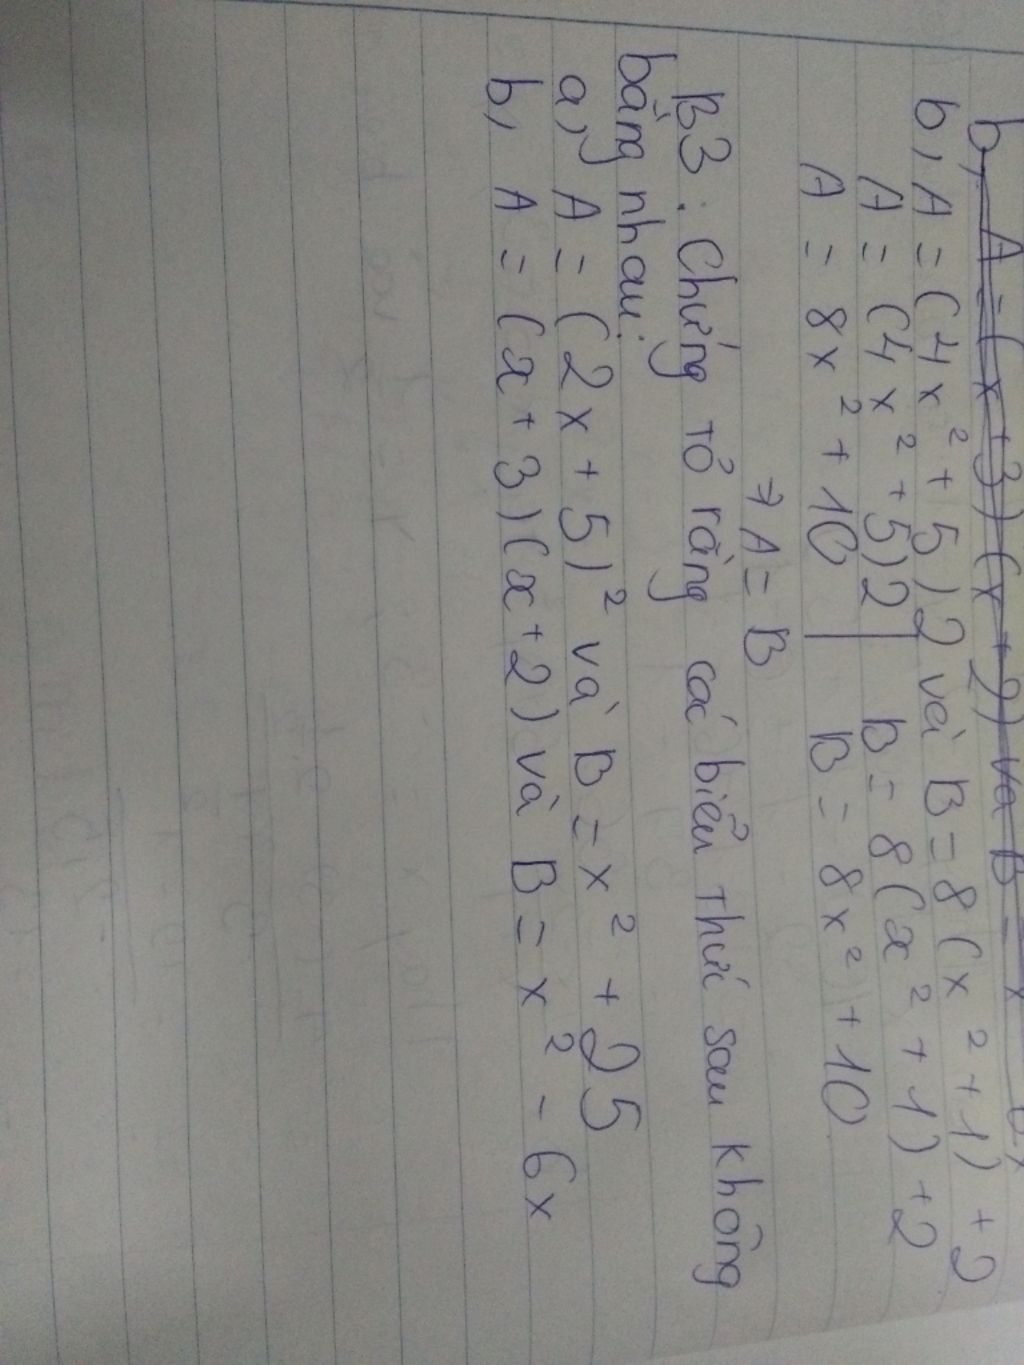 b, A = (x+3)(x+2) và B = x
b, A = (4x² + 5)2 và B = 8(x² + 1) + 2
A = (4x² + 5)2 | B = 8(x² + 1) + 2
A = 8x² + 10 | B = 8x² + 10
⇒ A = B
B3 : Chứng tỏ rằng các biểu thức sau không
bằng nhau:
a, A = (2x + 5)² và B = x² + 25
b, A = (x + 3)(x + 2) và B = x² - 6x